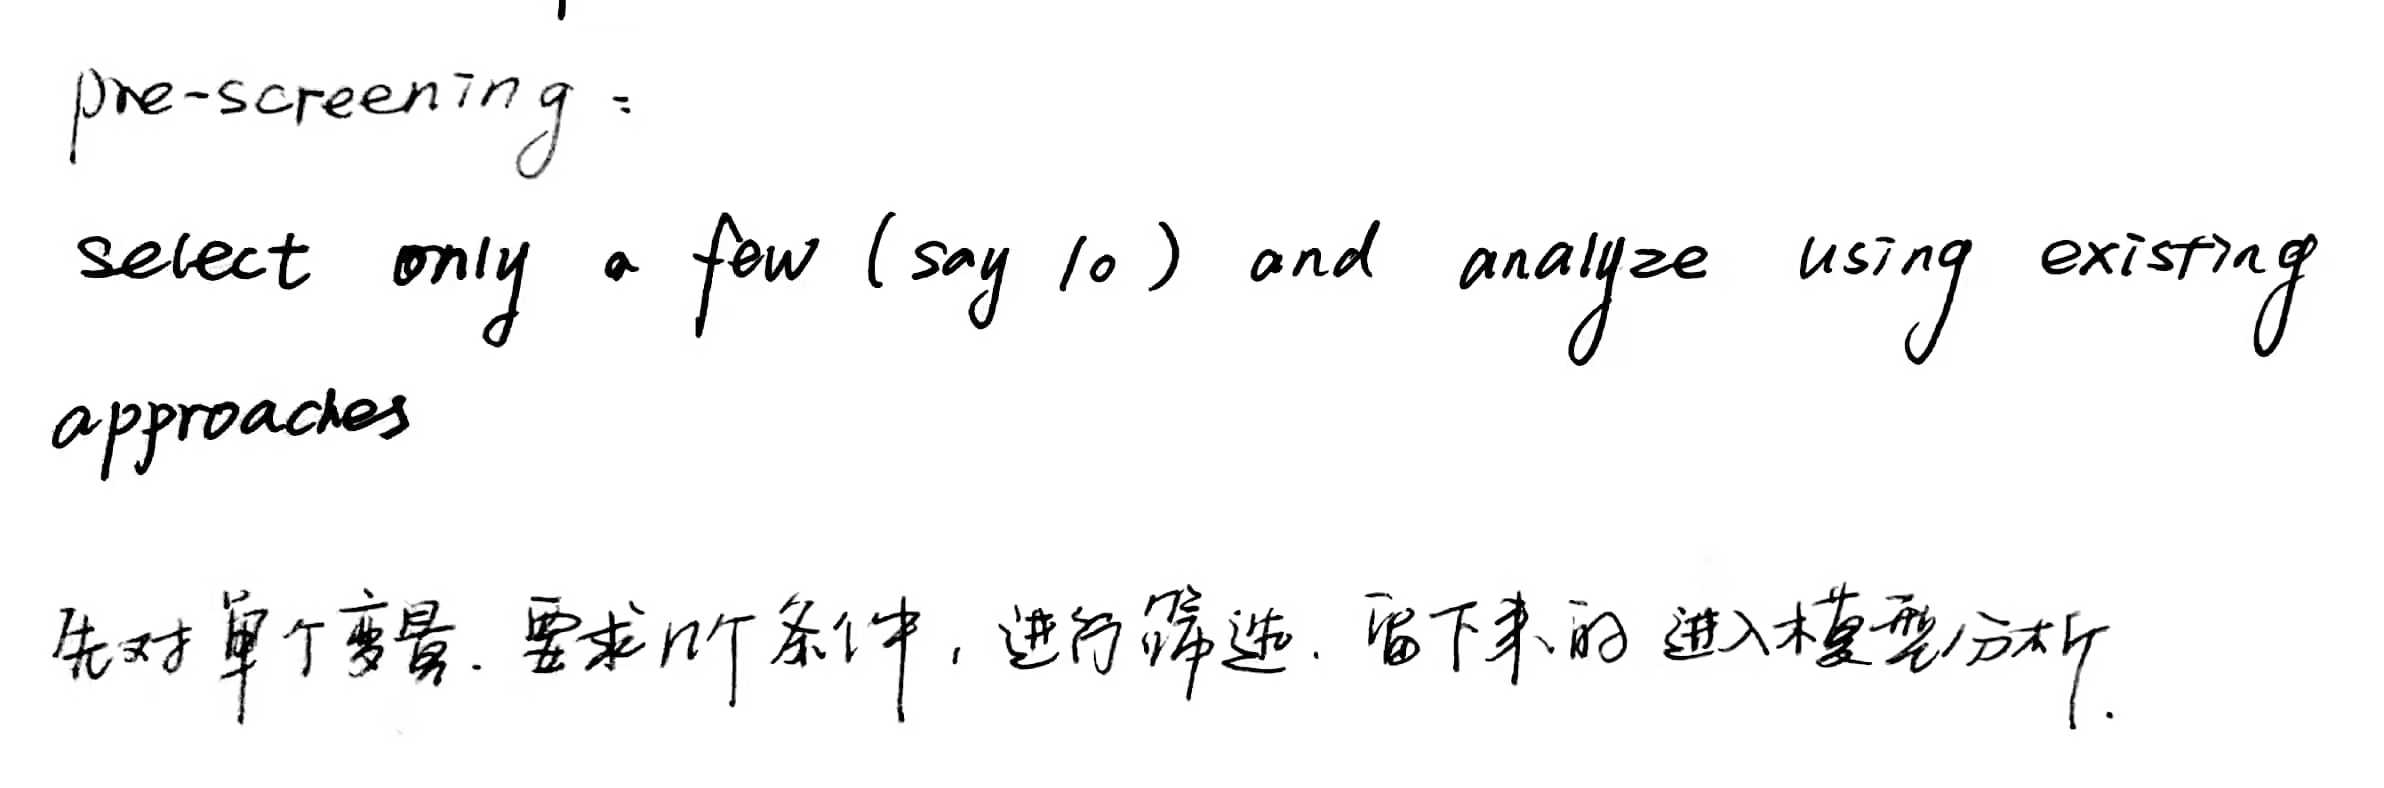 pre-screening :
select only a few (say 10) and analyze using existing
approaches
先对单个变量. 要求n个条件, 进行筛选. 留下来的进入模型分析.